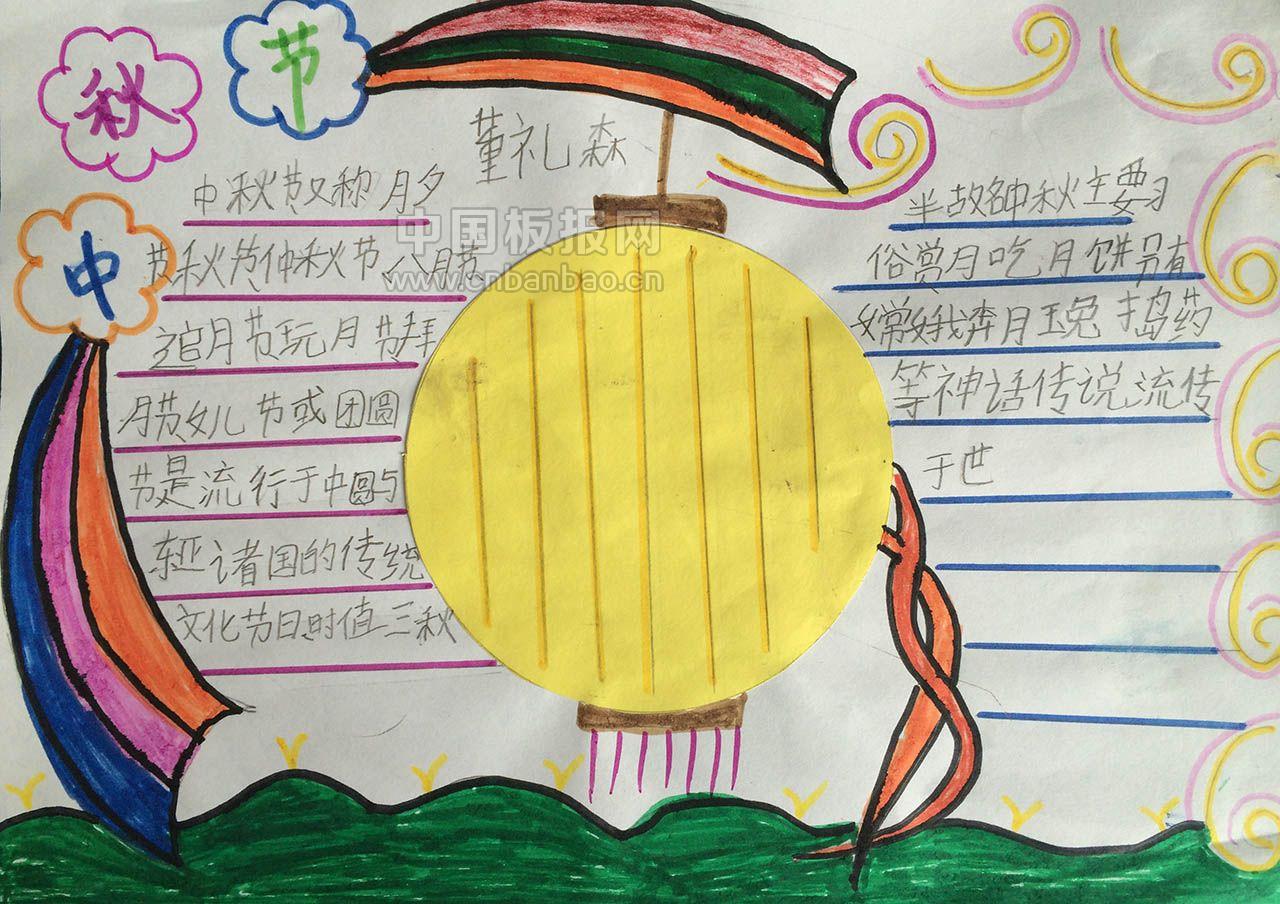 中
秋
节
董礼森
中秋节又称月夕
节秋节仲秋节八月节
追月节玩月节拜
月节女儿节或团圆
节是流行于中圆与
东亚诸国的传统
文化节日时值三秋
半故名中秋主要习
俗赏月吃月饼另有
嫦娥奔月玉兔捣药
等神话传说流传
于世
中国板报网
www.cnbanbao.cn